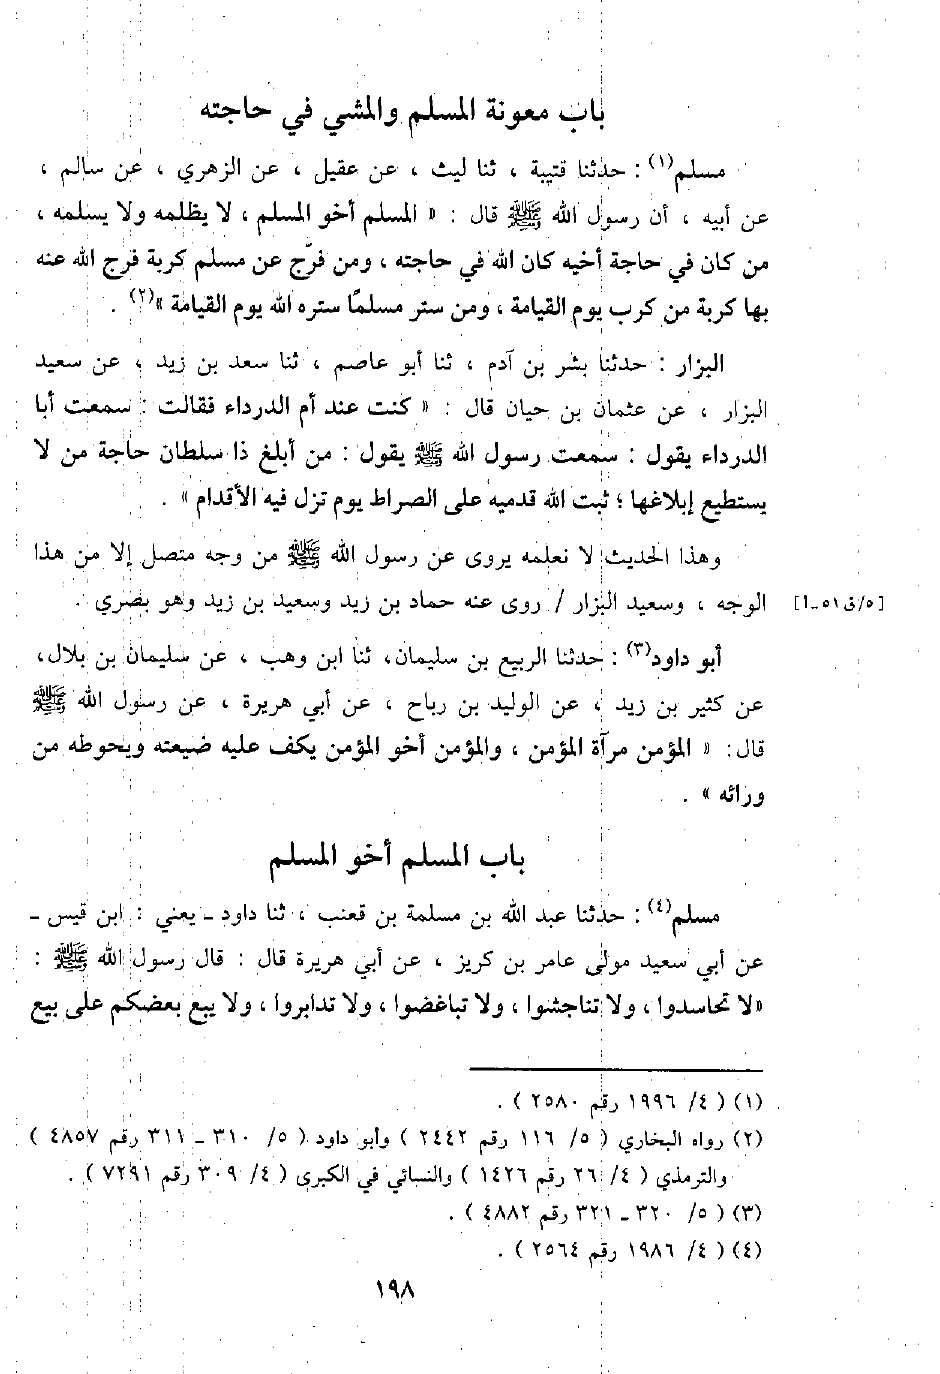 باب معونة المسلم والمشي في حاجته
مسلم(١) : حدثنا قتيبة ، ثنا ليث ، عن عقيل ، عن الزهري ، عن سالم ،
عن أبيه ، أن رسول الله ﷺ قال : « المسلم أخو المسلم ، لا يظلمه ولا يسلمه ،
من كان في حاجة أخيه كان الله في حاجته ، ومن فرّج عن مسلم كربة فرج الله عنه
بها كربة من كرب يوم القيامة ، ومن ستر مسلمًا ستره الله يوم القيامة »(٢) .
البزار : حدثنا بشر بن آدم ، ثنا أبو عاصم ، ثنا سعد بن زيد ، عن سعيد
البزار ، عن عثمان بن حيان قال : « كنت عند أم الدرداء فقالت : سمعت أبا
الدرداء يقول : سمعت رسول الله ﷺ يقول : من أبلغ ذا سلطان حاجة من لا
يستطيع إبلاغها ؛ ثبت الله قدميه على الصراط يوم تزل فيه الأقدام » .
وهذا الحديث لا نعلمه يروى عن رسول الله ﷺ من وجه متصل إلا من هذا
الوجه ، وسعيد البزار / روى عنه حماد بن زيد وسعيد بن زيد وهو بصري .
[٥/ق٥١-أ]
أبو داود(٣) : حدثنا الربيع بن سليمان، ثنا ابن وهب ، عن سليمان بن بلال،
عن كثير بن زيد ، عن الوليد بن رباح ، عن أبي هريرة ، عن رسول الله ﷺ
قال: « المؤمن مرآة المؤمن ، والمؤمن أخو المؤمن يكف عليه ضيعته ويحوطه من
ورائه » .
باب المسلم أخو المسلم
مسلم(٤) : حدثنا عبد الله بن مسلمة بن قعنب ، ثنا داود ـ يعني : ابن قيس ـ
عن أبي سعيد مولى عامر بن كريز ، عن أبي هريرة قال : قال رسول الله ﷺ :
«لا تحاسدوا ، ولا تناجشوا ، ولا تباغضوا ، ولا تدابروا ، ولا يبع بعضكم على بيع
(١) ( ٤/ ١٩٩٦ رقم ٢٥٨٠ ) .
(٢) رواه البخاري ( ٥/ ١١٦ رقم ٢٤٤٢ ) وأبو داود ( ٥/ ٣١٠ ـ ٣١١ رقم ٤٨٥٧ )
والترمذي ( ٤/ ٢٦ رقم ١٤٢٦ ) والنسائي في الكبرى ( ٤/ ٣٠٩ رقم ٧٢٩١ ) .
(٣) ( ٥/ ٣٢٠ ـ ٣٢١ رقم ٤٨٨٢ ) .
(٤) ( ٤/ ١٩٨٦ رقم ٢٥٦٤ ) .
١٩٨